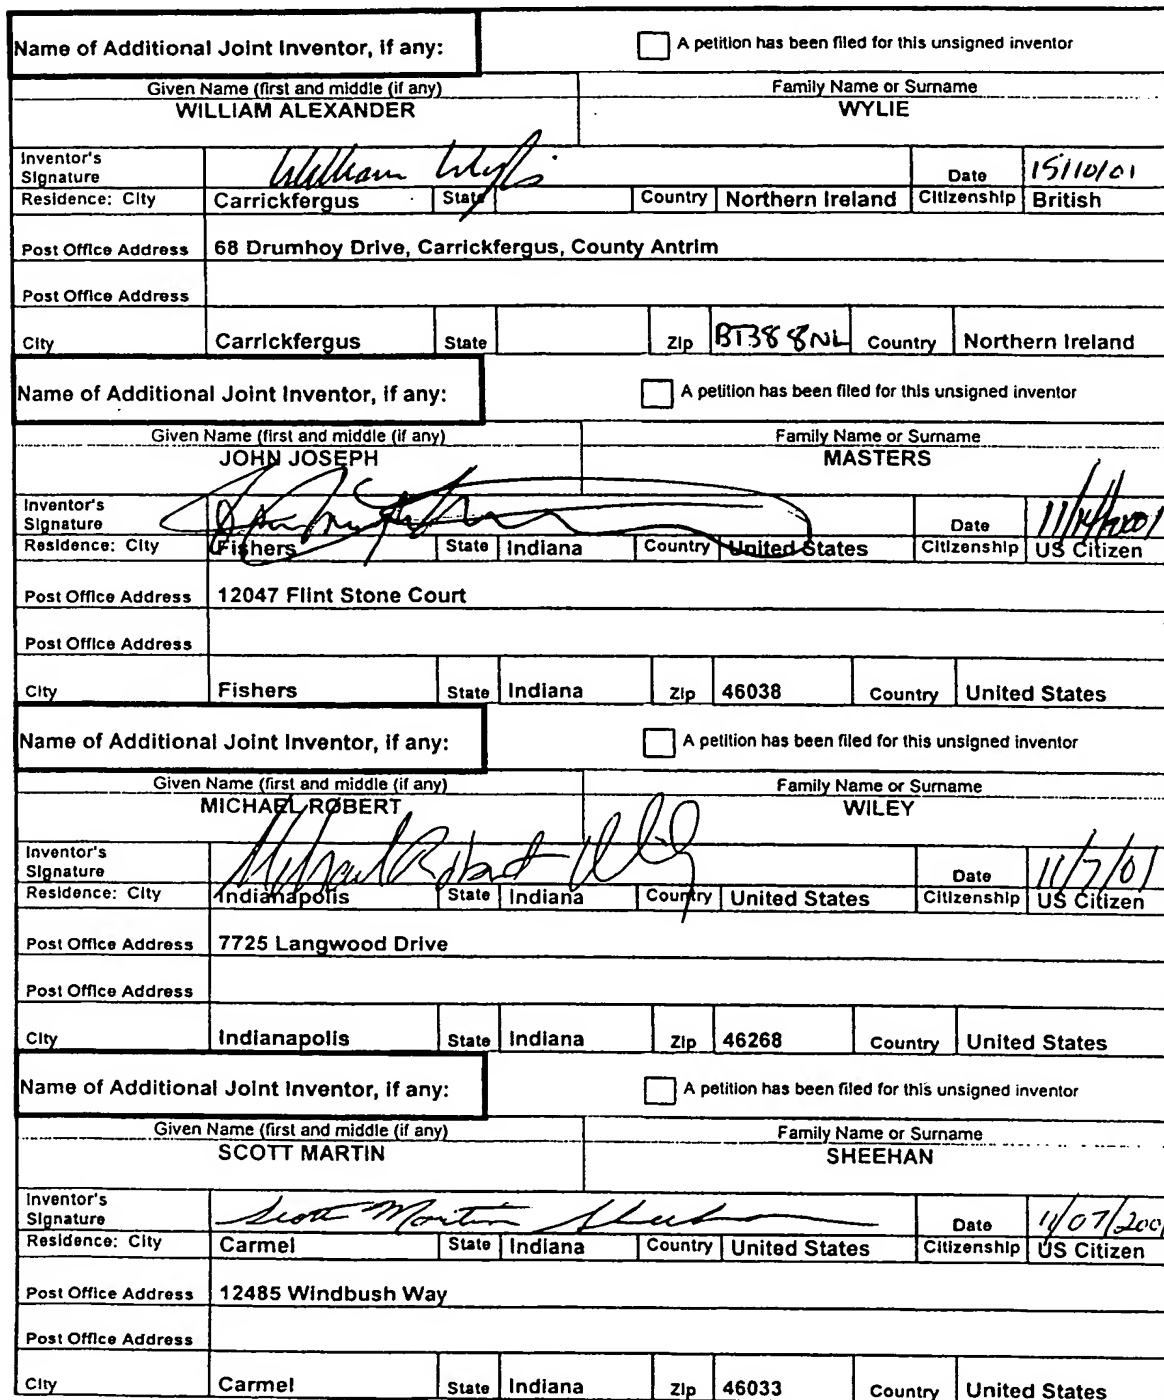 Name of Additional Joint Inventor, if any: A petition has been filed for this unsigned inventor
Given Name (first and middle (if any) Family Name or Surname
WILLIAM ALEXANDER WYLIE
Inventor's Signature William Wylie Date 15/10/01
Residence: City Carrickfergus State Country Northern Ireland Citizenship British
Post Office Address 68 Drumhoy Drive, Carrickfergus, County Antrim
Post Office Address
City Carrickfergus State Zip BT38 8NL Country Northern Ireland
Name of Additional Joint Inventor, if any: A petition has been filed for this unsigned inventor
Given Name (first and middle (if any) Family Name or Surname
JOHN JOSEPH MASTERS
Inventor's Signature Date
Residence: City Fishers State Indiana Country United States Citizenship US Citizen
Post Office Address 12047 Flint Stone Court
Post Office Address
City Fishers State Indiana Zip 46038 Country United States
Name of Additional Joint Inventor, if any: A petition has been filed for this unsigned inventor
Given Name (first and middle (if any) Family Name or Surname
MICHAEL ROBERT WILEY
Inventor's Signature Michael Robert Wiley Date 11/7/01
Residence: City Indianapolis State Indiana Country United States Citizenship US Citizen
Post Office Address 7725 Langwood Drive
Post Office Address
City Indianapolis State Indiana Zip 46268 Country United States
Name of Additional Joint Inventor, if any: A petition has been filed for this unsigned inventor
Given Name (first and middle (if any) Family Name or Surname
SCOTT MARTIN SHEEHAN
Inventor's Signature Scott Martin Sheehan Date 11/07/2001
Residence: City Carmel State Indiana Country United States Citizenship US Citizen
Post Office Address 12485 Windbush Way
Post Office Address
City Carmel State Indiana Zip 46033 Country United States